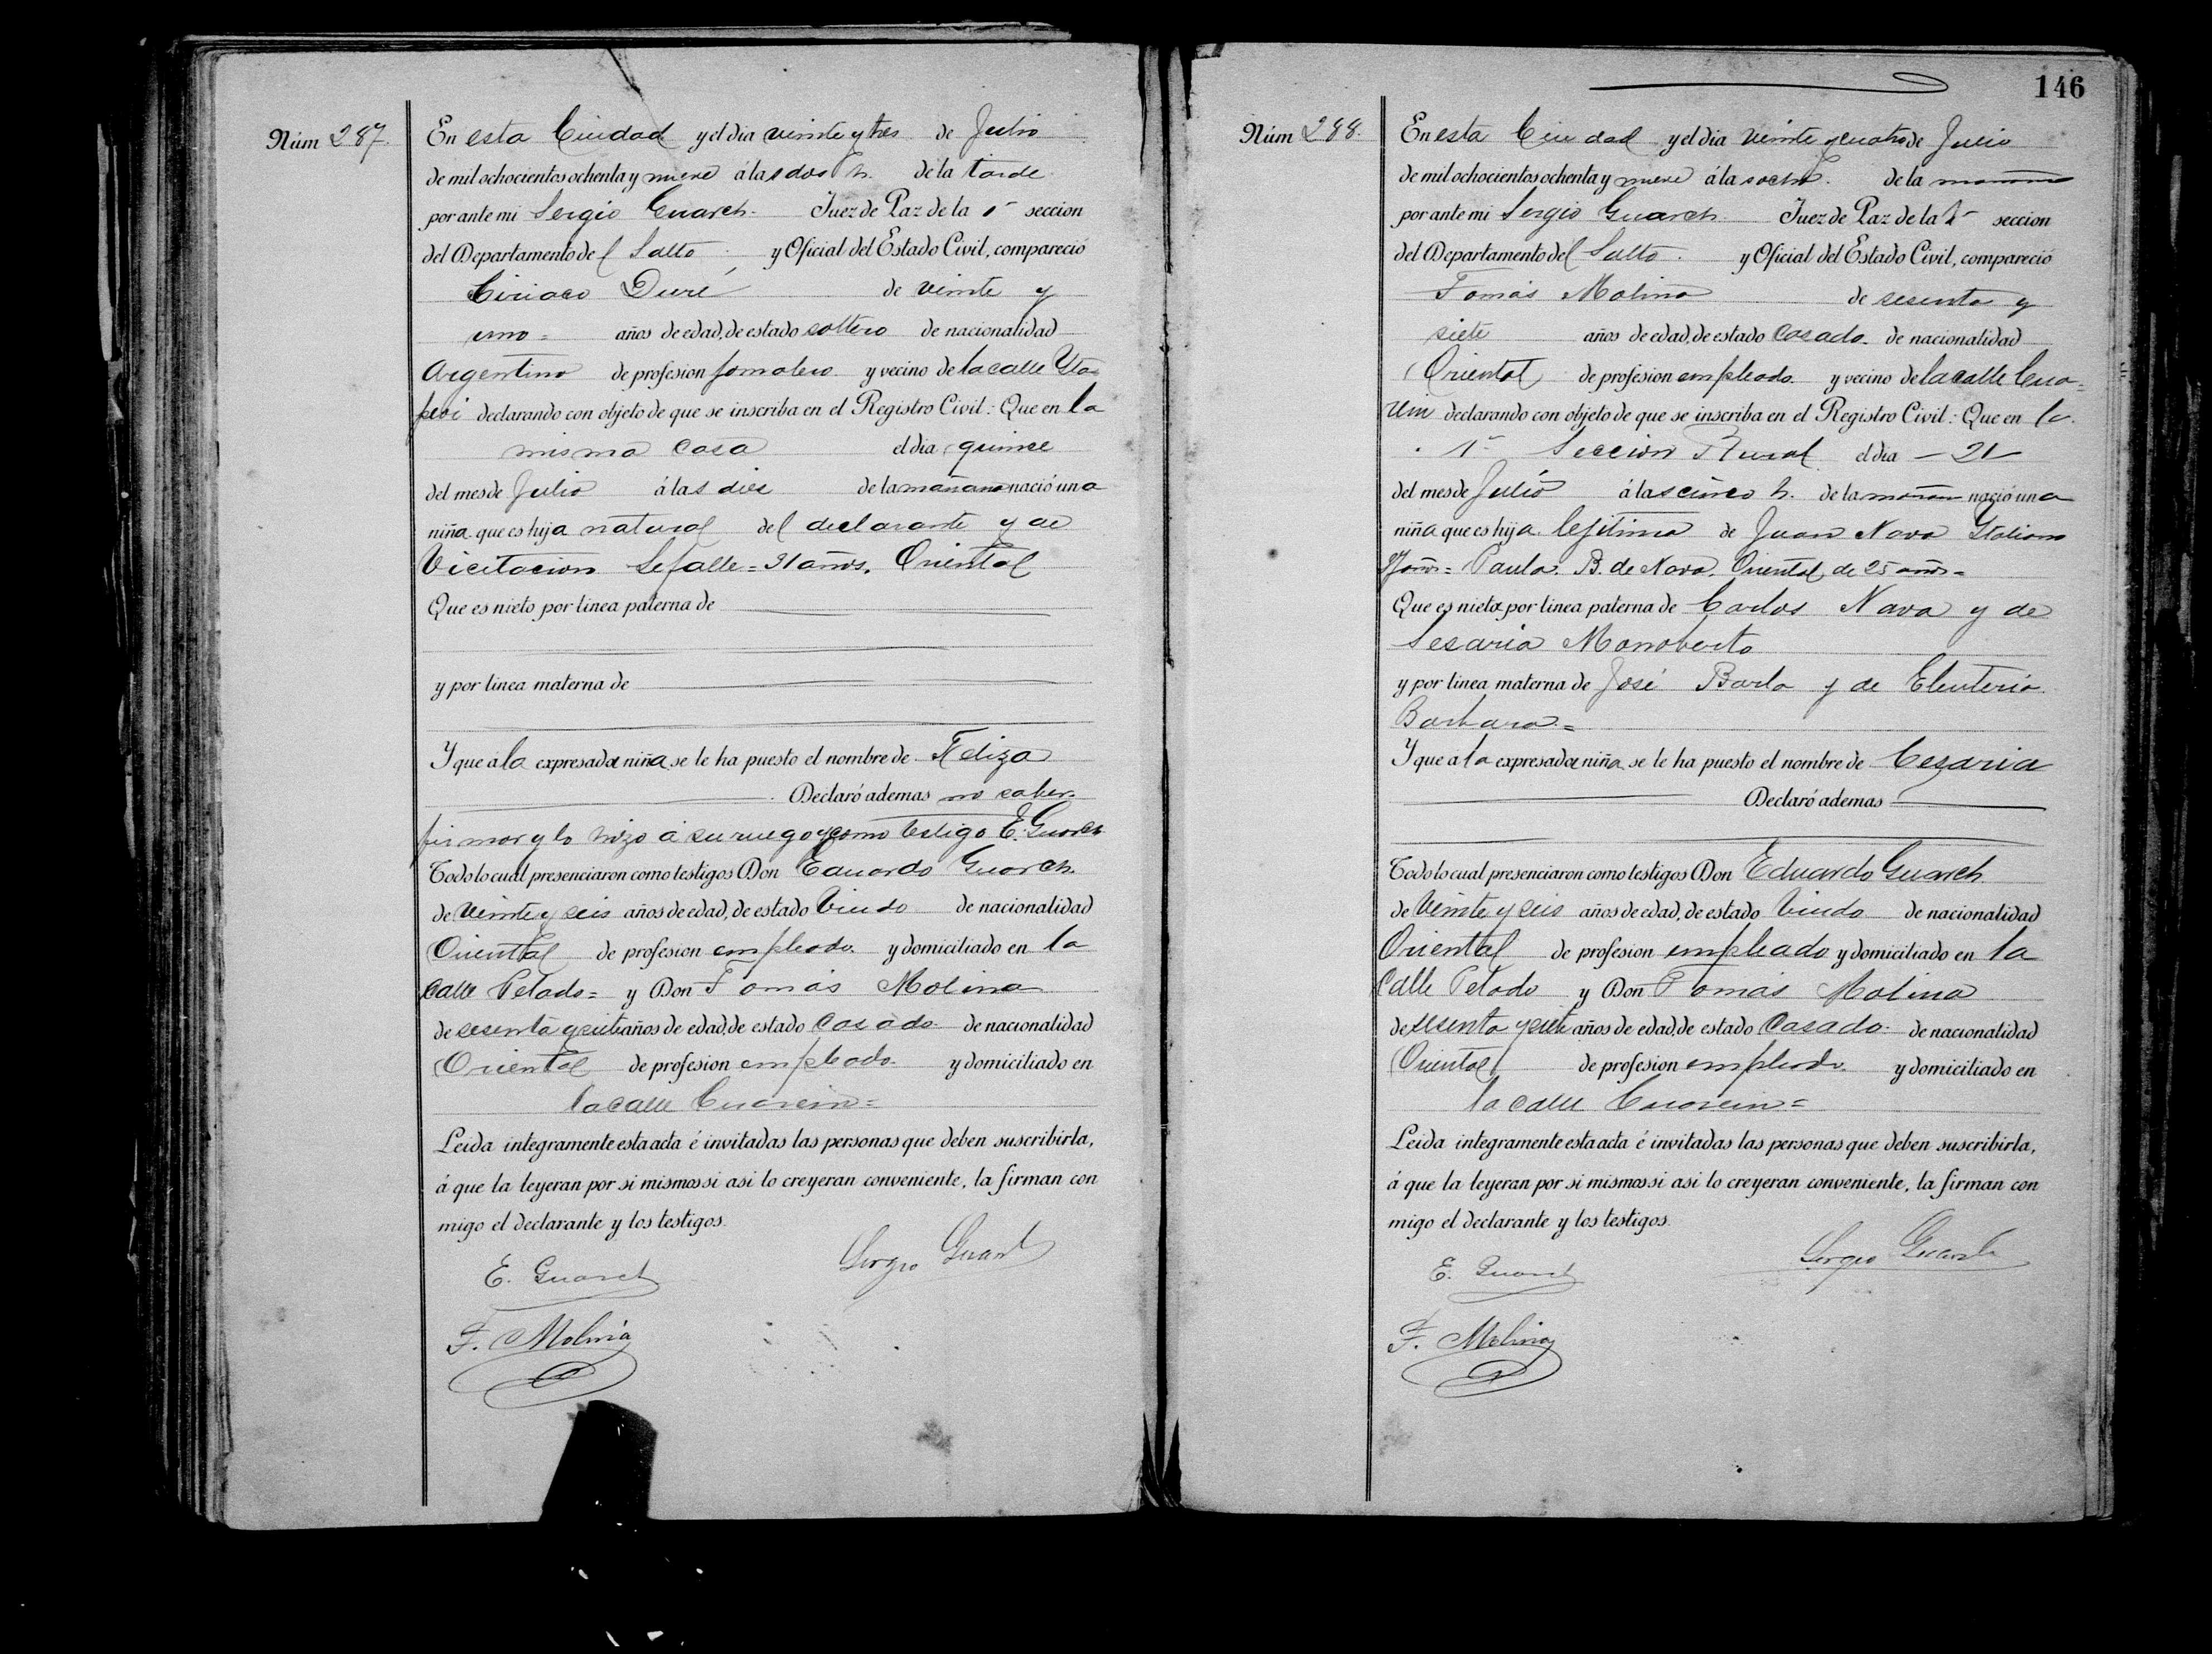 Núm 287.
En esta Ciudad y el dia veinte y tres de Julio
de mil ochocientos ochenta y nueve á las dos h. de la tarde
por ante mi Sergio Guarch. Juez de Paz de la 1ª seccion
del Departamento del Salto y Oficial del Estado Civil, compareció
Ciriaco Duré de veinte y
uno = años de edad, de estado soltero de nacionalidad
Argentino de profesion jornalero y vecino de la calle Ita
pebi declarando con objeto de que se inscriba en el Registro Civil: Que en la
misma casa el dia quince
del mes de Julio á las diez de la mañana nació una
niña que es hija natural del declarante y de
Vicitacion = 21 años. Oriental
Que es nieto por linea paterna de
y por linea materna de
Y que á la expresada niña se le ha puesto el nombre de Feliza
Declaró ademas no saber
firmar y lo hizo á su ruego y como testigo E. Guarch
Todo lo cual presenciaron como testigos Don Eduardo Guarch.
de veinte y seis años de edad, de estado Viudo de nacionalidad
Oriental de profesion empleado y domiciliado en la
Calle = y Don Tomás Molina
de sesenta y siete años de edad, de estado Casado de nacionalidad
Oriental de profesion empleado y domiciliado en
la calle Cuareim =
Leida integramente esta acta é invitadas las personas que deben suscribirla,
á que la leyeran por si mismos si asi lo creyeran conveniente, la firman con
migo el declarante y los testigos.
E. Guarch Sergio Guarch
F. Molina
146
Núm 288.
En esta Ciudad y el dia veinte y cuatro de Julio
de mil ochocientos ochenta y nueve á las ocho. de la mañana
por ante mi Sergio Guarch Juez de Paz de la 1ª seccion
del Departamento del Salto. y Oficial del Estado Civil, compareció
Tomás Molina de sesenta y
siete años de edad, de estado Casado de nacionalidad
Oriental de profesion empleado y vecino de la calle Cua=
reim declarando con objeto de que se inscriba en el Registro Civil: Que en la
1ª Seccion Rural el dia - 21 -
del mes de Julio á las cinco h. de la mañana nació una
niña que es hija lejitima de Juan Nava Italiano
años = Paula B. de Nava, Oriental, de 25 años =
Que es nieta por linea paterna de Carlos Nava y de
Sesaria
y por linea materna de José y de Eleuteria
Barbara =
Y que á la expresada niña se le ha puesto el nombre de Cezaria
Declaró ademas
Todo lo cual presenciaron como testigos Don Eduardo Guarch
de veinte y seis años de edad, de estado Viudo de nacionalidad
Oriental de profesion empleado y domiciliado en la
Calle y Don Tomás Molina
de sesenta y siete años de edad, de estado Casado de nacionalidad
Oriental de profesion empleado y domiciliado en
la calle Cuareim =
Leida integramente esta acta é invitadas las personas que deben suscribirla,
á que la leyeran por si mismos si asi lo creyeran conveniente, la firman con
migo el declarante y los testigos.
E. Guarch Sergio Guarch
F. Molina